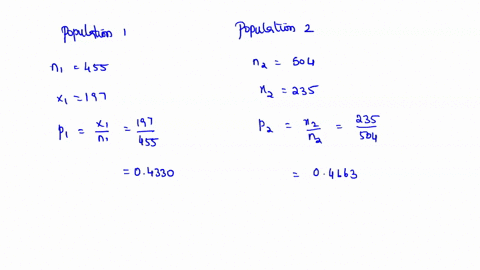 Population 1
n₁ = 455
x₁ = 197
p₁ = x₁/n₁ = 197/455
= 0.4330
Population 2
n₂ = 504
x₂ = 235
p₂ = x₂/n₂ = 235/504
= 0.4663